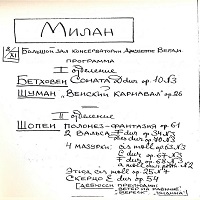 Милан
8/XI Большой зал консерватории Джузеппе Верди
программа
I отделение
Бетховен Соната D dur op 10 №3
Шуман „Венский карнавал" op 26
II отделение
Шопен Полонез-фантазия op 61
2 вальса F dur op 34 №3
op 70 №3
4 мазурки: cis moll op 63 №3
C dur op 67 №3
F dur op 68 №3
a moll op 68 №2
Этюд cis moll op 25 №7
Скерцо E dur op 54
Дебюсси прелюдии
"Ветер на равнине"
"Вереск"